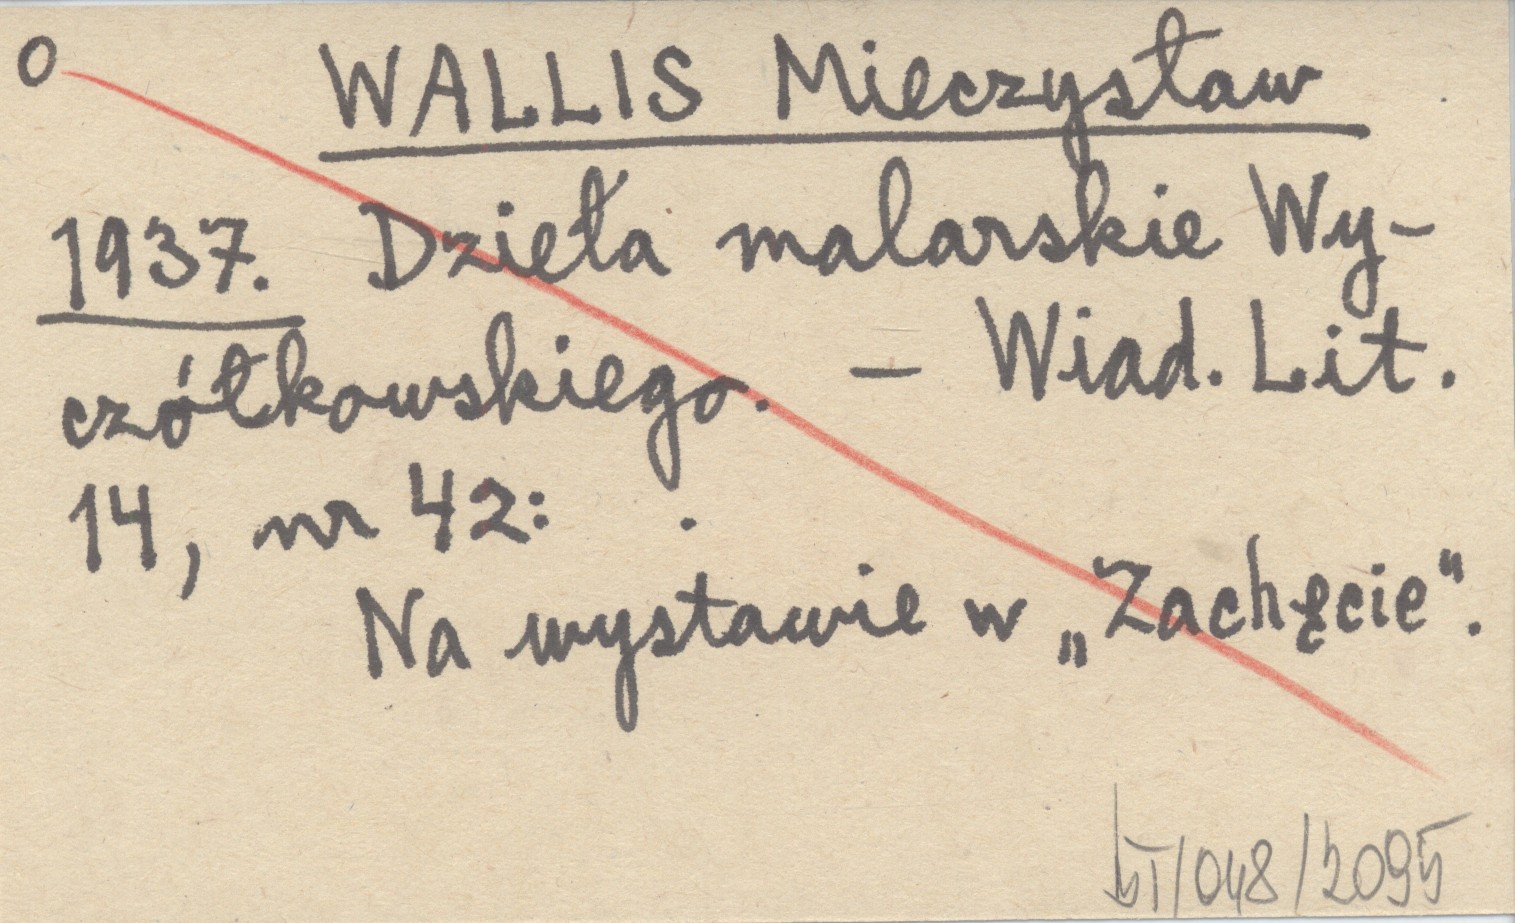 O WALLIS Mieczysław
1937. Dzieła malarskie Wy-
czółkowskiego. – Wiad. Lit.
14, nr 42:
Na wystawie w „Zachęcie".
/048/2095